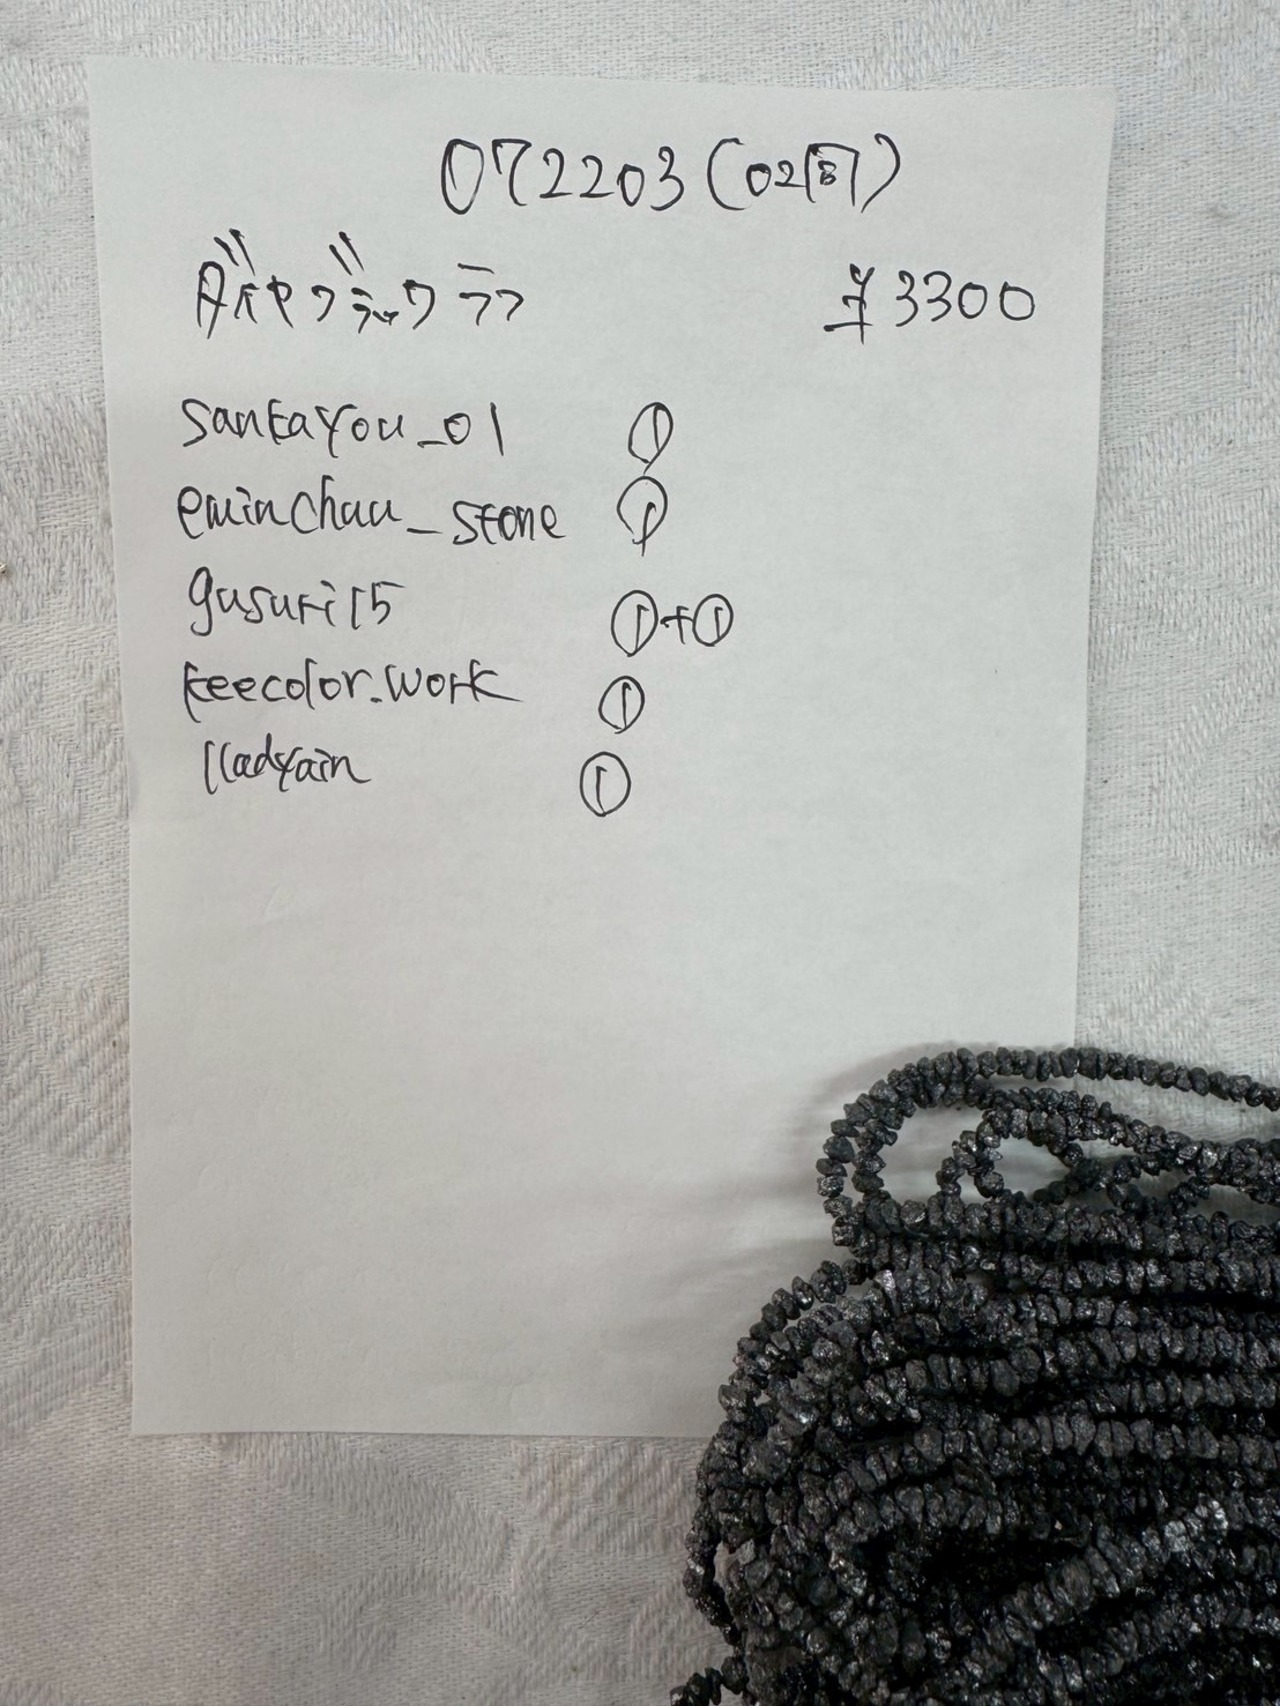 072203(02西)
ダイヤブラックラフ ¥3300
santayou_01 ①
eminchuu_stone ①
gusuri15 ①+①
keecolor.work ①
lladyain ①